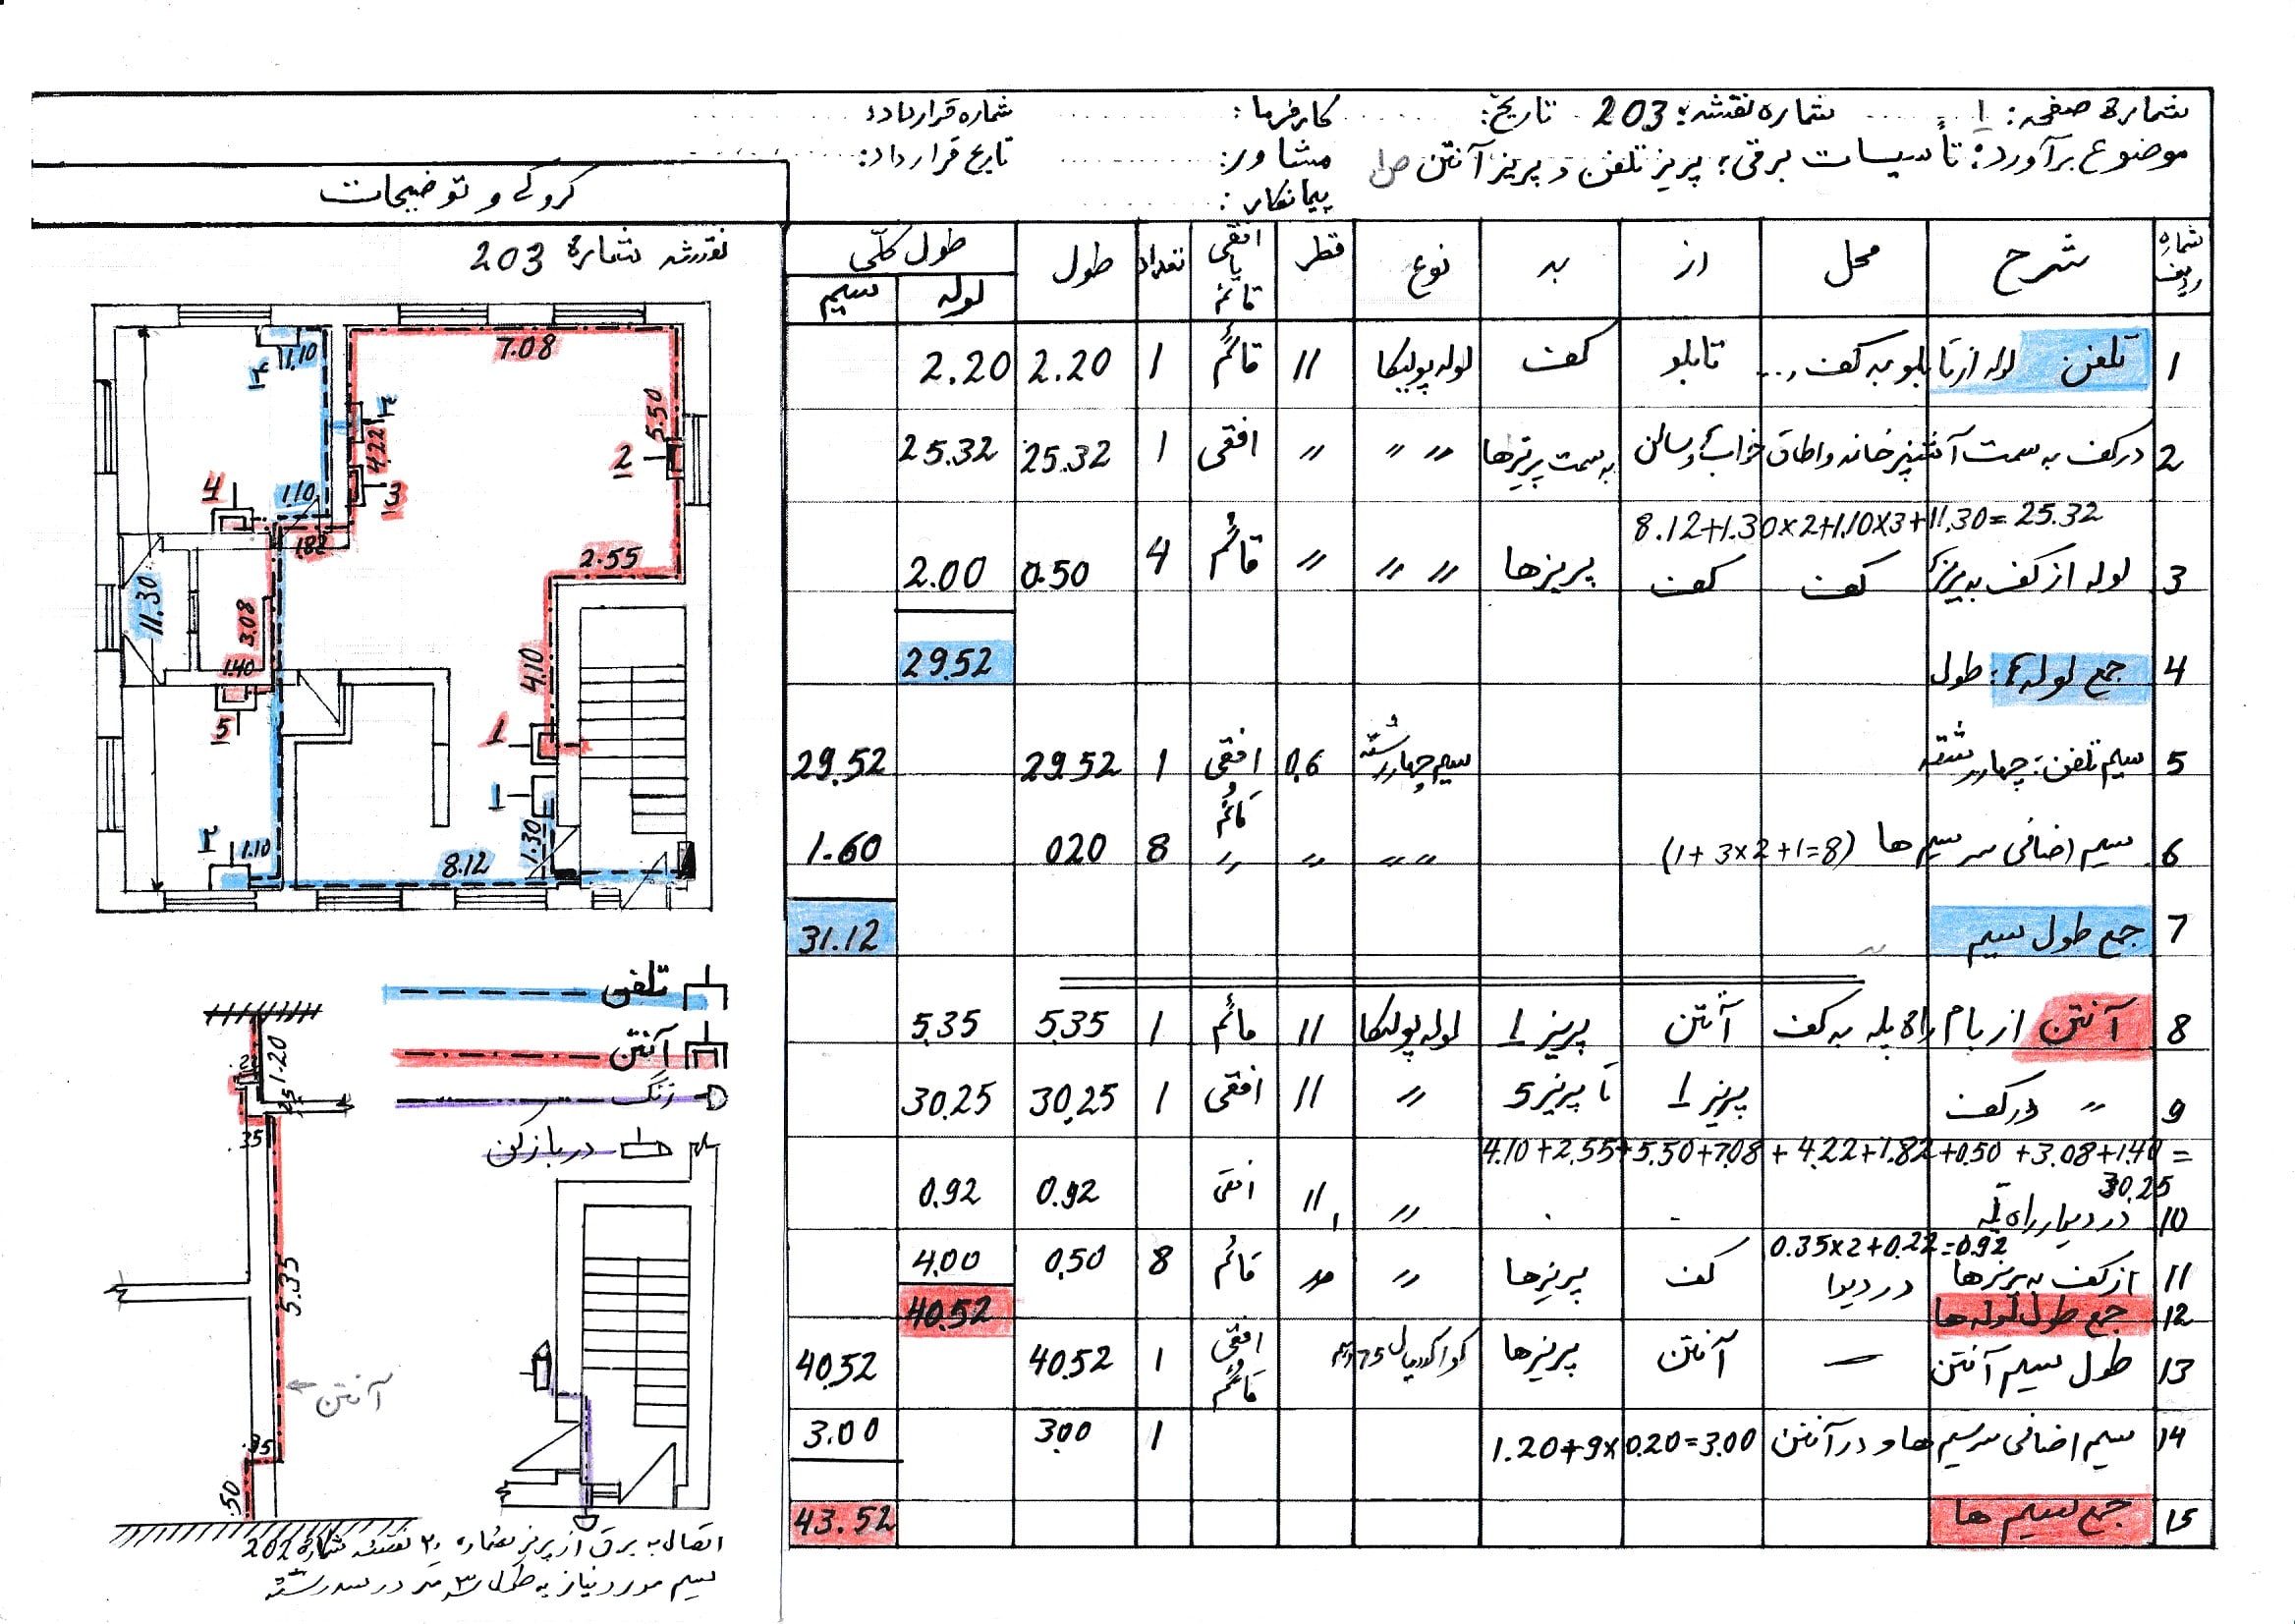 شماره صفحه: ۱ شماره نقشه: 203 تاریخ: کارفرما: شماره قرارداد:
موضوع برآورد: تأسیسات برقی؛ پریز تلفن و پریز آنتن مشاور: تاریخ قرارداد:
پیمانکار:
کروکی و توضیحات
شماره ردیف شرح محل از به نوع قطر افقی یا قائم تعداد طول طول کلّی
لوله سیم
1 تلفن لوله از تابلو به کف تابلو کف لوله پولیکا 11 قائم 1 2.20 2.20
2 در کف به سمت آشپزخانه و اطاق خواب و سالن به سمت پریزها " " " افقی 1 25.32 25.32
8.12+1.30×2+1.10×3+11.30=25.32
3 لوله از کف به پریز کف کف پریزها " " " قائم 4 0.50 2.00
4 جمع لوله ها: طول 29.52
5 سیم تلفن: چهار رشته سیم چهار رشته 0.6 افقی و قائم 1 29.52 29.52
6 سیم اضافی سر سیم ها (1+3×2+1=8) " " " " 8 020 1.60
7 جمع طول سیم 31.12
8 آنتن از بام راه پله به کف آنتن پریز 1 لوله پولیکا 11 قائم 1 5.35 5.35
9 " در کف پریز 1 تا پریز 5 " 11 افقی 1 30.25 30.25
4.10+2.55+5.50+7.08+4.22+1.82+0.50+3.08+1.40=
30.25
10 در دیوار راه پله " 11 افقی 0.92 0.92
0.35×2+0.22=0.92
11 از کف به پریزها در دیوار کف پریزها " " قائم 8 0.50 4.00
12 جمع طول لوله ها 40.52
13 طول سیم آنتن — آنتن پریزها کواکسیال 75 اهم افقی و قائم 1 40.52 40.52
14 سیم اضافی سر سیم ها و در آنتن 1.20+9×0.20=3.00 1 3.00 3.00
15 جمع سیم ها 43.52
نقشه شماره 203
1.10
7.08
۳
۴
4.22
5.50
2
3
4
1.10
1.82
2.55
11.30
3.08
1.40
4.10
5
1
1
۲
1.10
8.12
1.30
تلفن
آنتن
زنگ
در باز کن
1.20
.35
5.35
آنتن
.35
.50
اتصال به برق از پریز شماره ۲ نقشه شماره 202
سیم مورد نیاز به طول ۳ متر در سه رشته